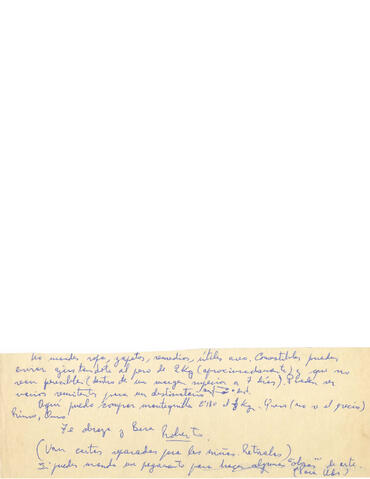 No mandes ropa, zapatos, remedios, útiles aseo. Comestibles puedes
enviar ajustándote al peso de 2 Kg (aproximadamente) y que no
sean perecibles (dentro de un margen superior a 7 días). Pueden ser
varios remitentes para un destinatario
Aquí puedo comprar mantequilla Kg. Queso (no sé el precio)
Te abraza y besa Roberto.
(Van cartas separadas para las niñas. Retíralas)
puedes manda un pegamento para hacer algunas "obras" de arte.
(para Uds.)